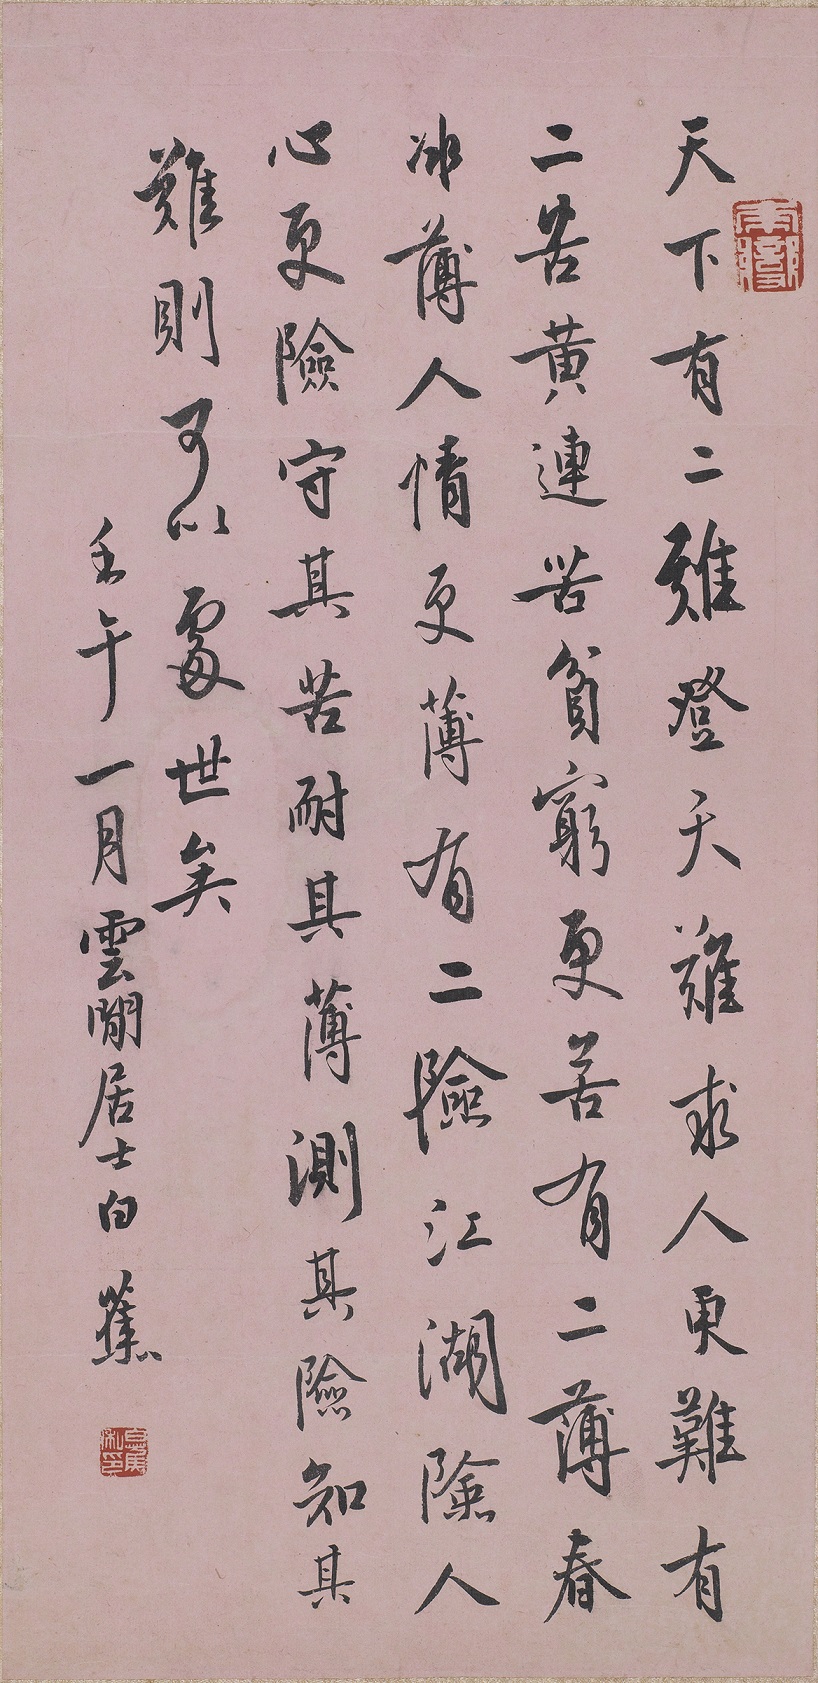 天下有二難登天難求人更難有
二苦黃連苦貧窮更苦有二薄春
冰薄人情更薄有二險江湖險人
心更險守其苦耐其薄測其險知其
難則可以處世矣
壬午一月雲間居士白蕉